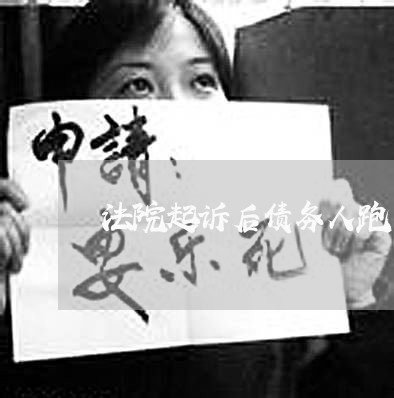 申請：
法院起诉后债务人跑
安乐死